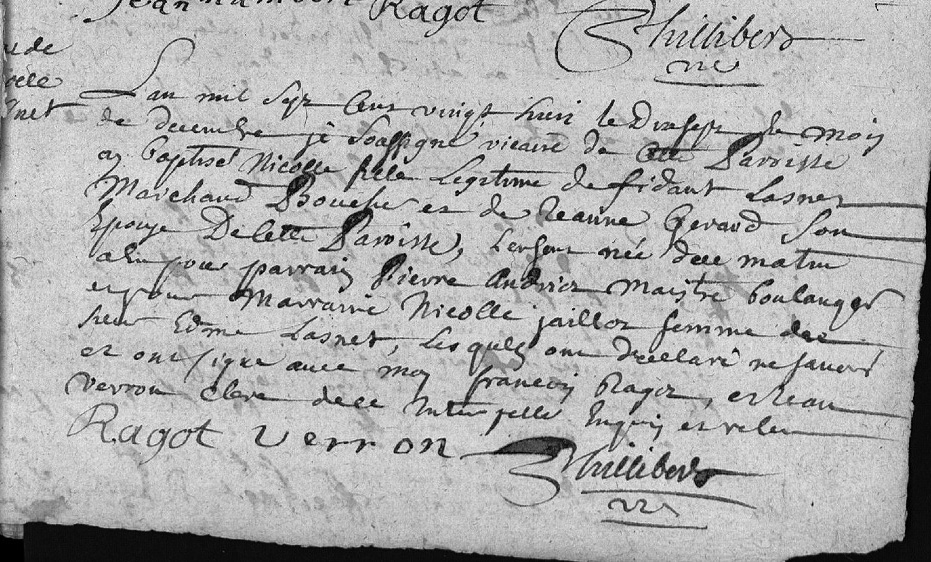 Jean humbert Ragot Phillibert
vic
de
L'an mil Sept Cens vingt huit le Dixsept du mois
de decembre je Soussigné vicaire de Cette Paroisse
ay baptisé Nicolle fille Legitime de fidant Lasnet
Marchand Boucher et de Jeanne Gerard Son
Epouse De Cette Paroisse, L'enfant née de ce matin
a Eu pour parrain Pierre Andrier Maistre boulanger
et pour Marraine Nicolle jaillot femme de
Sieur Edme Lasnet, Lesquels ont declaré ne Savoir
et ont signé avec moy francois Ragot, et Jean
verron Clerc de ce Interpellé Enquis et
Ragot verron Phillibert
vic